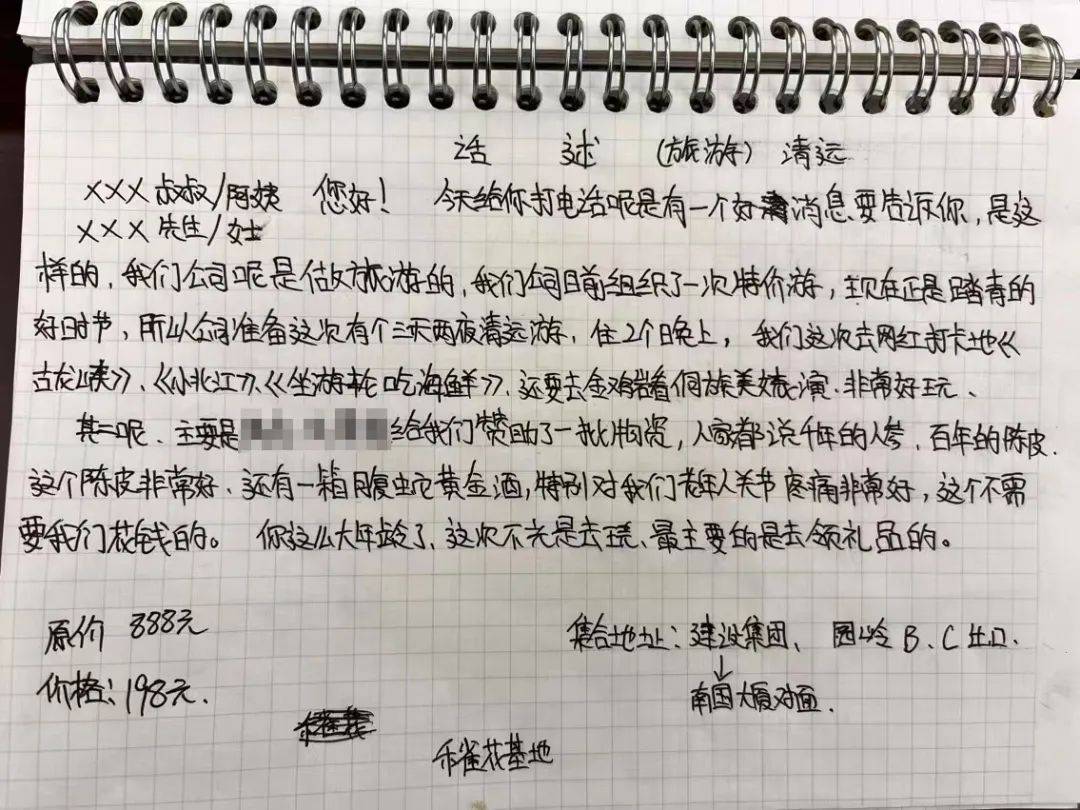 话 述 (旅游) 清远
XXX 叔叔/阿姨 您好! 今天给你打电话呢是有一个好消息要告诉你,是这
XXX 先生/女士
样的,我们公司呢是做旅游的,我们公司目前组织了一次特价游,现在正是踏青的
好时节,所以公司准备这次有个三天两夜清远游,住2个晚上,我们这次去网红打卡地《
古龙峡》、《小北江》、《坐游轮吃海鲜》、还要去金鸡岩看侗族美女表演.非常好玩、
其二呢、主要是给我们赞助了一批物资,人家都说千年的人参,百年的陈皮.
这个陈皮非常好、还有一箱蝮蛇黄金酒,特别对我们老年人关节疼痛非常好,这个不需
要我们花钱的。 你这么大年龄了、这次不光是去玩、最主要的是去领礼品的。
原价 888元
集合地址:建设集团、园岭B、C出口.
↓
价格:198元.
南国大厦对面.
禾雀花基地